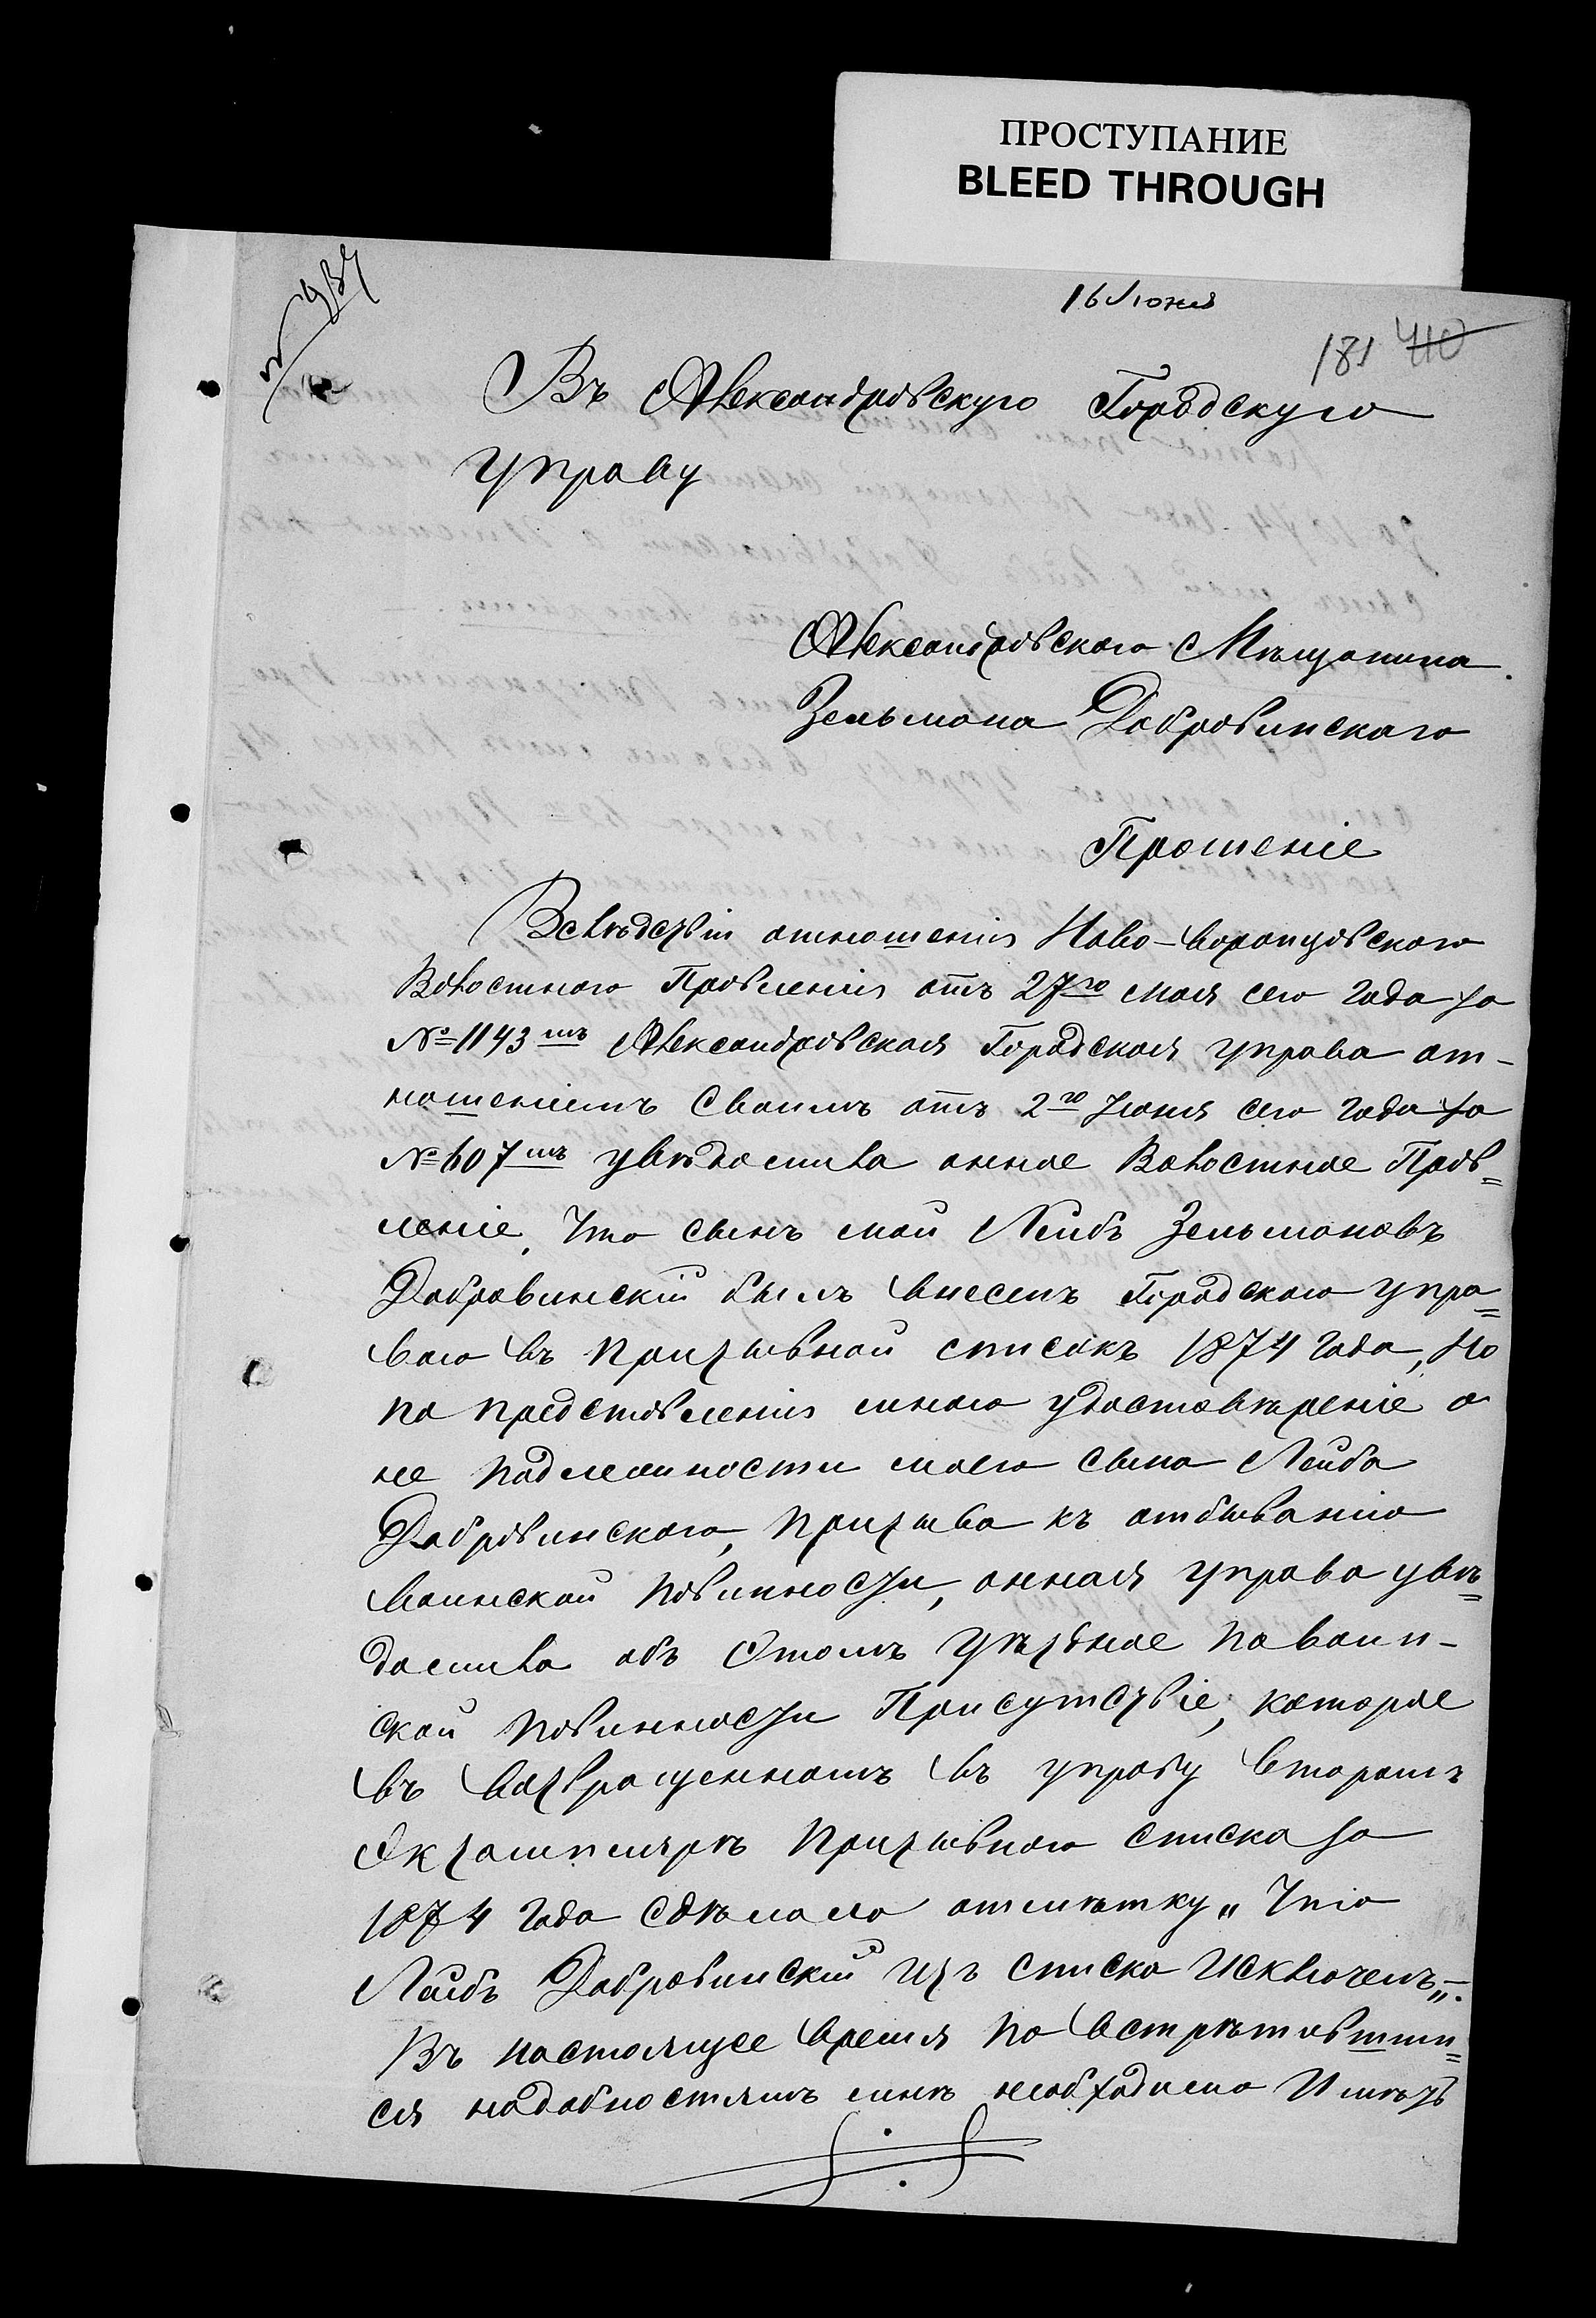 ПРОСТУПАНИЕ
BLEED THROUGH
16 Июня
181 410
Въ Александровскую Городскую
Управу
Александровскаго Мѣщанина
Зельмана Добровинскаго
Прошеніе
Вслѣдствіи отношенія Ново-Воронцовскаго
Волостного Правленія отъ 27го мая сего года за
№ 1143мъ Александровская Городская управа от-
ношеніемъ Своимъ отъ 2го Іюня сего года за
№ 607мъ увѣдомила оное Волостное Прав=
леніе, Что сынъ мой Лейбъ Зельмановъ
Добровинскій былъ внесенъ Городскою упра=
вою въ призывной списокъ 1874 года, Но
по представленія мною удостовѣреніе о
не подлежности моего сына Лейба
Добровинскаго, призыва къ отбыванію
воинской повинности, онная управа увѣ=
домила объ Этомъ Уѣздное по воин-
ской повинности Присутствіе, которое
въ возвращенномъ въ управу второмъ
Экземплярѣ призывного списка за
1874 года Сдѣлало отмѣтку „Что
Лейбъ Добровинскій изъ списка Исключенъ„.
Въ настоящее время по встрѣтовшши=
ся надобностямъ мнѣ необходимо Имѣть